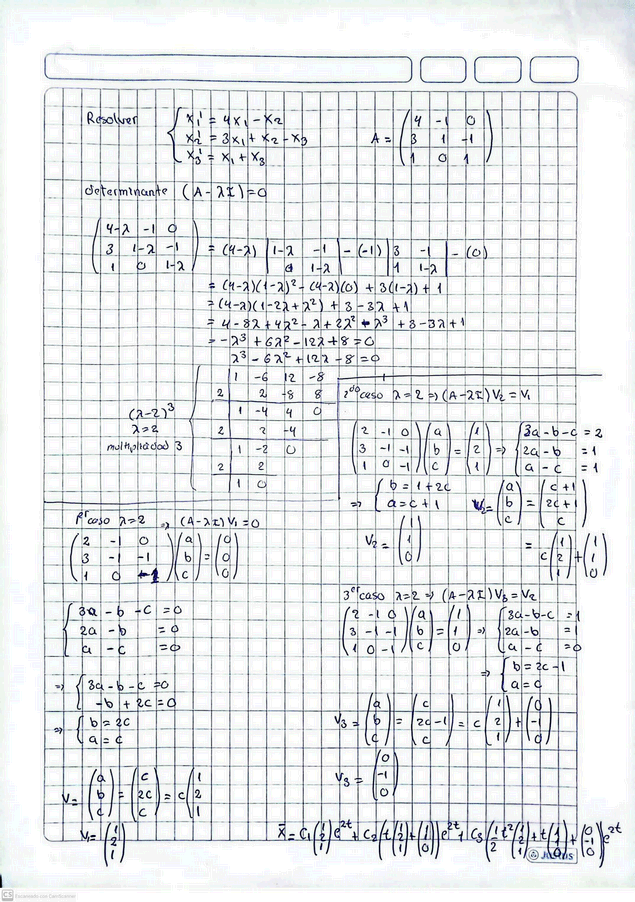 Resolver
x₁' = 4x₁ - x₂
x₂' = 3x₁ + x₂ - x₃
x₃' = x₁ + x₃
A = (4 -1 0
3 1 -1
1 0 1)
determinante (A - λI) = 0
(4-λ -1 0
3 1-λ -1
1 0 1-λ)
= (4-λ) |1-λ -1
0 1-λ| - (-1) |3 -1
1 1-λ| - (0)
= (4-λ)(1-λ)² - (4-λ)(0) + 3(1-λ) + 1
= (4-λ)(1-2λ+λ²) + 3 - 3λ + 1
= 4 - 8λ + 4λ² - λ + 2λ² - λ³ + 3 - 3λ + 1
= -λ³ + 6λ² - 12λ + 8 = 0
λ³ - 6λ² + 12λ - 8 = 0
1 -6 12 -8
2 2 -8 8
1 -4 4 0
2 2 -4
1 -2 0
2 2
1 0
(λ-2)³
λ = 2
multiplicidad 3
1er caso λ=2 ⇒ (A-λI)V₁ = 0
(2 -1 0
3 -1 -1
1 0 -1) (a
b
c) = (0
0
0)
3a - b - c = 0
2a - b = 0
a - c = 0
⇒ 3a - b - c = 0
-b + 2c = 0
⇒ b = 2c
a = c
V = (a
b
c) = (c
2c
c) = c (1
2
1)
V₁ = (1
2
1)
2do caso λ=2 ⇒ (A-λI)V₂ = V₁
(2 -1 0
3 -1 -1
1 0 -1) (a
b
c) = (1
2
1) ⇒ 3a - b - c = 2
2a - b = 1
a - c = 1
⇒ b = 1 + 2c
a = c + 1
V₂ = (a
b
c) = (c+1
2c+1
c)
= c (1
2
1) + (1
1
0)
V₂ = (1
1
0)
3er caso λ=2 ⇒ (A-λI)V₃ = V₂
(2 -1 0
3 -1 -1
1 0 -1) (a
b
c) = (1
1
0) ⇒ 3a - b - c = 1
2a - b = 1
a - c = 0
⇒ b = 2c - 1
a = c
V₃ = (a
b
c) = (c
2c-1
c) = c (1
2
1) + (0
-1
0)
V₃ = (0
-1
0)
X̄ = C₁ (1
2
1) e²ᵗ + C₂ (t (1
2
1) + (1
1
0)) e²ᵗ + C₃ (1/2 t² (1
2
1) + t (1
1
0) + (0
-1
0)) e²ᵗ
CS Escaneado con CamScanner